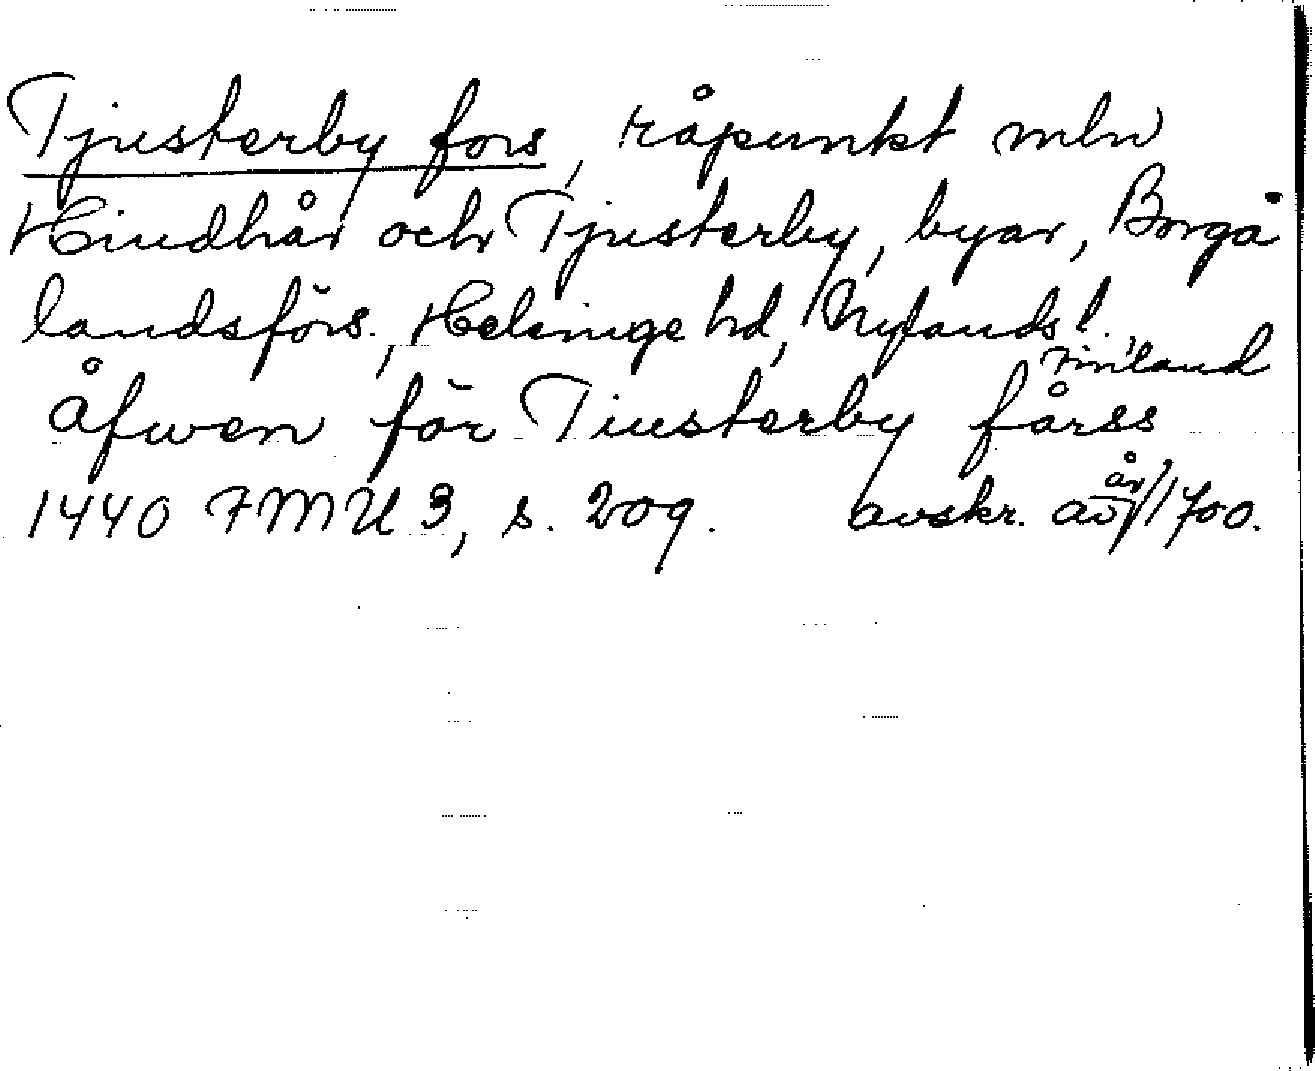 Tjusterby fors, råpunkt mln
Hindhår och Tjusterby, byar, Borgå
landsförs., Helsinge hd, Nylands l.,
Finland
åfwen för Tiusterby fårss
1440 FMU 3, s. 209. avskr. av år 1700.